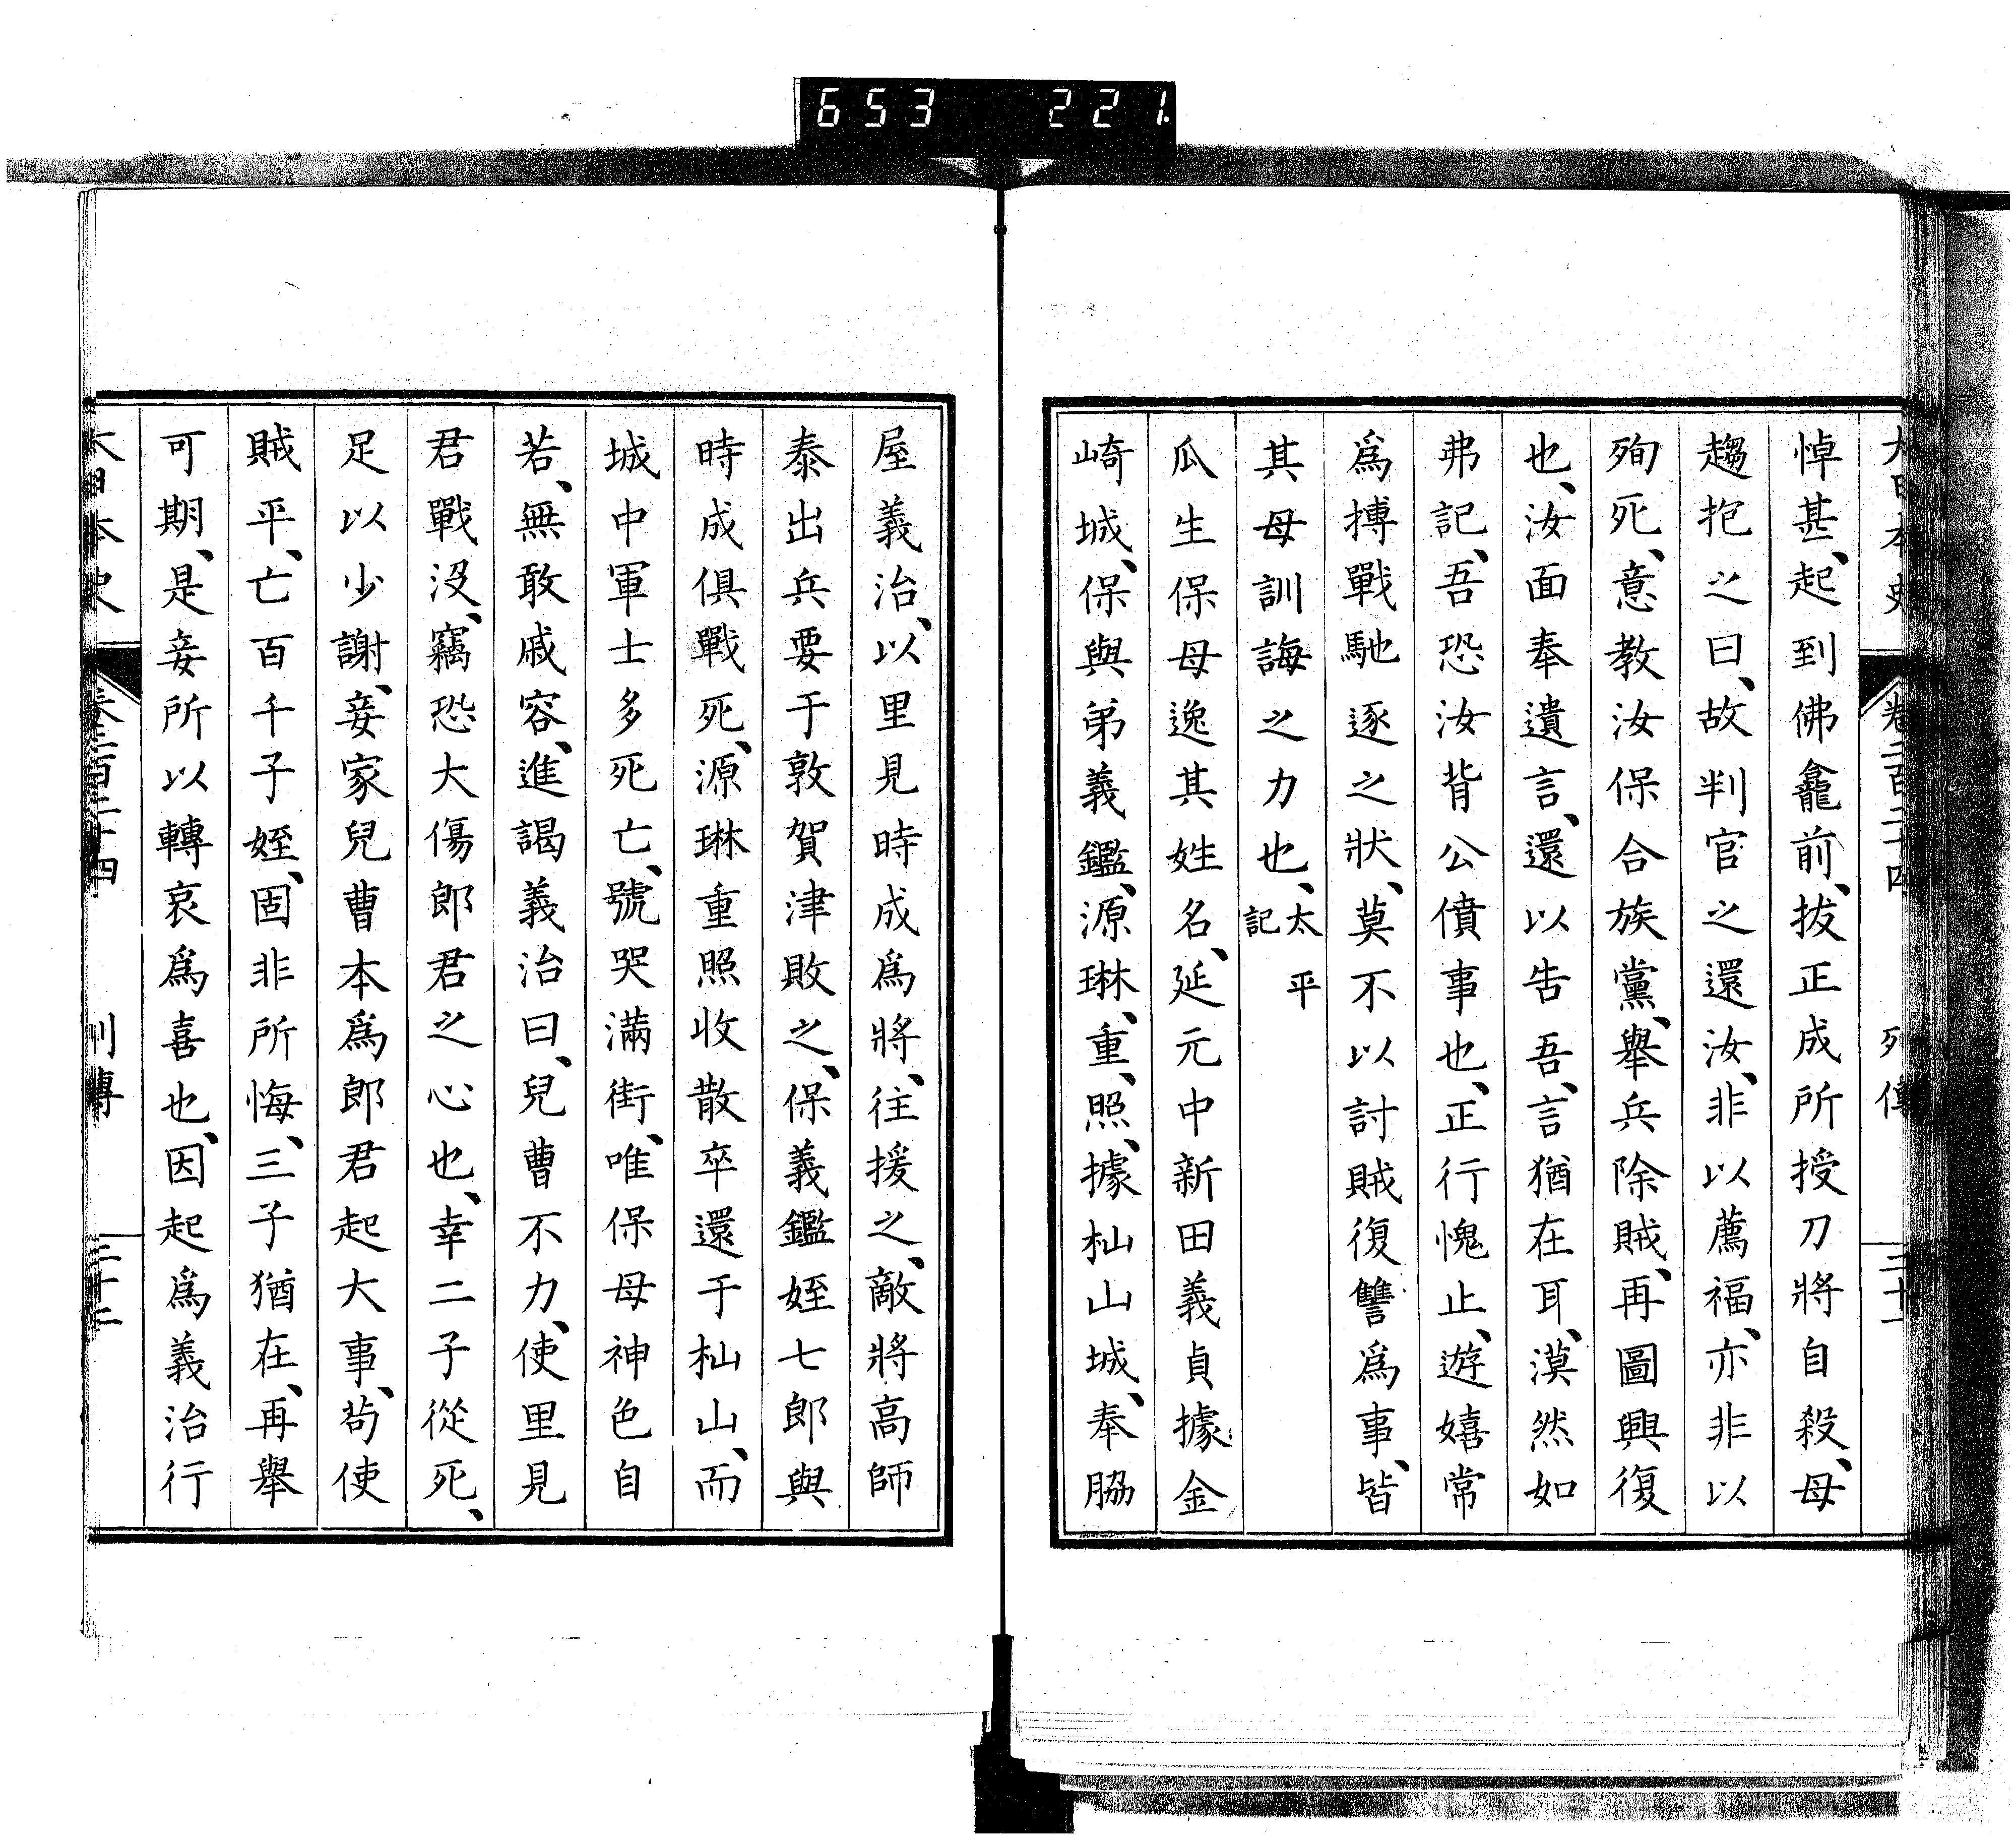 653 221.
大日本史 卷二百二十四 列傳 三十一
悼甚、起到佛龕前、拔正成所授刀將自殺、母
趨抱之曰、故判官之還汝、非以薦福、亦非以
殉死、意教汝保合族黨、舉兵除賊、再圖興復
也、汝面奉遺言、還以告吾、言猶在耳、漠然如
弗記、吾恐汝背公僨事也、正行愧止、遊嬉常
爲搏戰馳逐之狀、莫不以討賊復讐爲事、皆
其母訓誨之力也、太平記
瓜生保母逸其姓名、延元中新田義貞據金
崎城、保與弟義鑑、源琳、重、照、據杣山城、奉脇
屋義治、以里見時成爲將、往援之、敵將高師
泰出兵要于敦賀津敗之、保義鑑姪七郎與
時成俱戰死、源琳重照收散卒還于杣山、而
城中軍士多死亡、號哭滿街、唯保母神色自
若、無敢戚容、進謁義治曰、兒曹不力、使里見
君戰沒、竊恐大傷郎君之心也、幸二子從死、
足以少謝、妾家兒曹本爲郎君起大事、茍使
賊平、亡百千子姪、固非所悔、三子猶在、再舉
可期、是妾所以轉哀爲喜也、因起爲義治行
大日本史 卷二百二十四 列傳 三十二